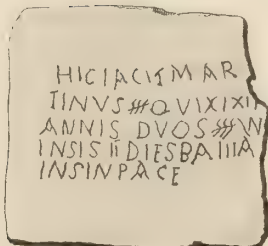 HICIACITMAR
TINVS QVIXIXII
ANNIS DVOS
INSIS II DIESBAIIIA
INSINPACE